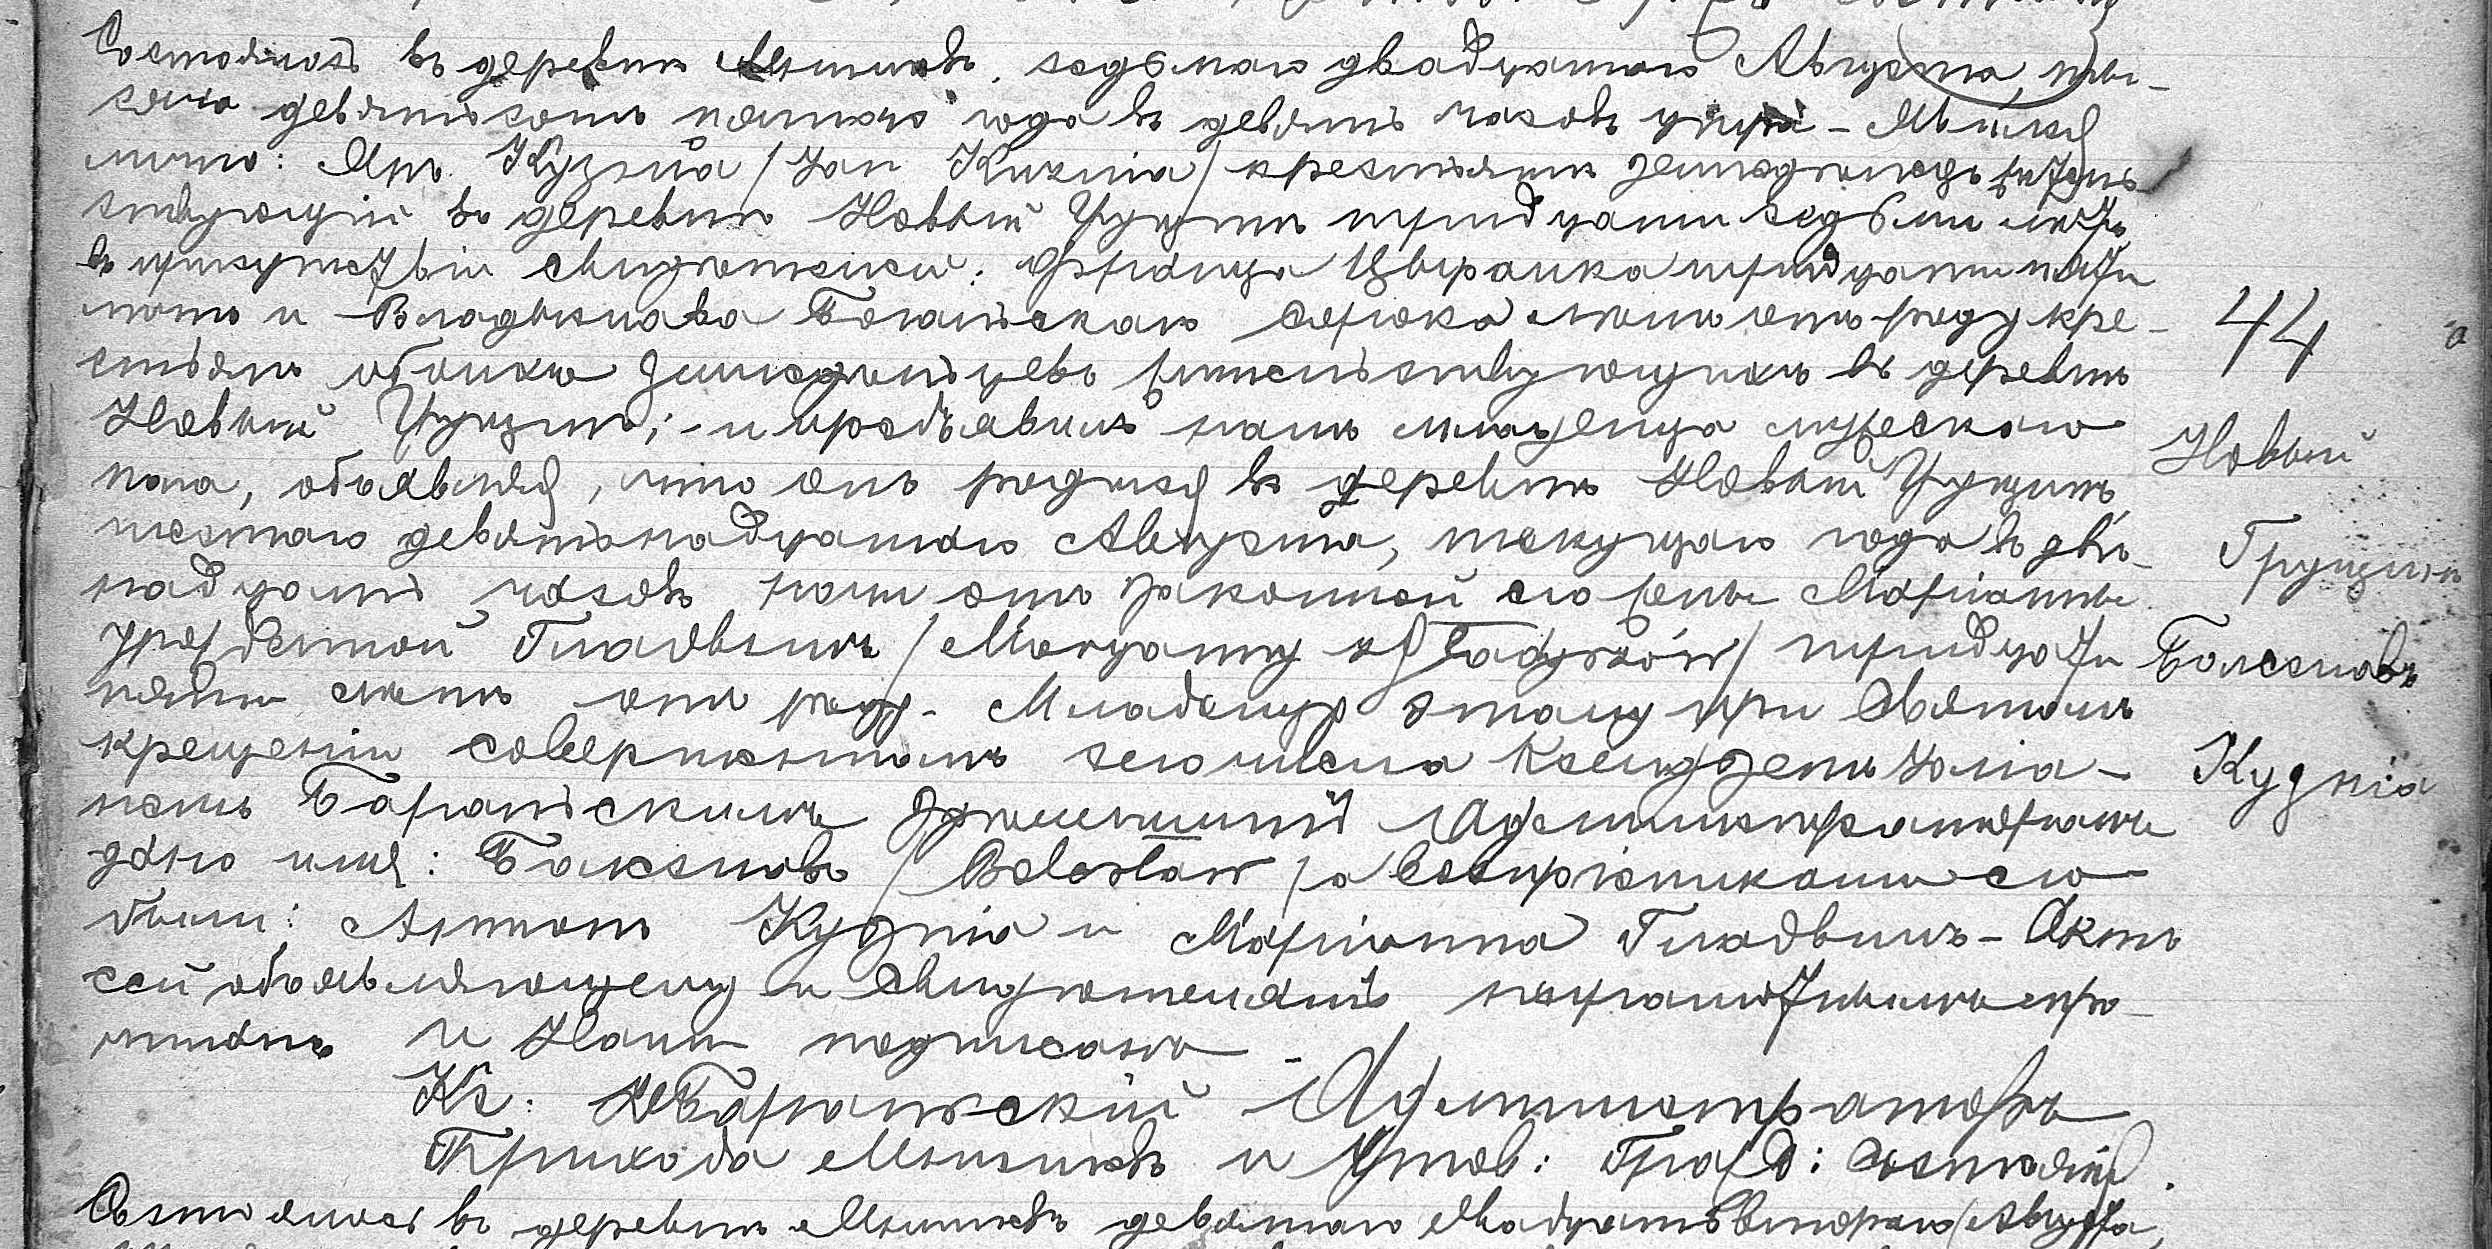 Состоялось въ деревни Мнишекъ, седьмаго двадцатаго Августа, ты-
сяча девятьсотъ пятаго года въ девять часовъ утра – Явился
лично: Янъ Кузня / Jan Kuźnia / крестьянинъ земледѣлецъ жтель
ствующій въ деревни Новый Груцинъ тридцати седьми лѣтъ,
въ присутствіи свидѣтелей: Франца Цыранка тридцати пяти
лѣтъ и Владыслава Боганьскаго сорока лѣтъ отъ роду кре-
стьянъ обоихъ земледѣльцевъ жительствующихъ въ деревни
Новый Груцинъ; – и предъявилъ намъ младенца мужескаго
пола, объявляя, что онъ родился въ деревни Новый Груцинъ,
шестаго девятьнадцатаго Августа, текущаго года въ двѣ-
надцать часовъ ночи отъ законной его жены Маріанны
урожденной Гладышъ / Maryanny z / тридцати
лѣтъ отъ роду. Младенцу этому при Святомъ
крещеніи совершенномъ сего числа Ксендземъ
Бараньскимъ здѣшнимъ Администраторомъ
дано имя: Болеславъ / Bolesław / а воспріемниками его
были: Антонъ Кудня и Маріанна Гладышъ – Актъ
сей объявляющему и свидѣтелямъ неграмотнымъ про-
читанъ и Нами подписанъ –
Кс: Бараньскій Администраторъ
Прихода Мнишекъ и Гражд: Состоянія.
Состоялось въ деревни Мнишекъ девятаго двадцатьвтораго Августа,
44
Новый
Груцинъ
Болеславъ
Кудня